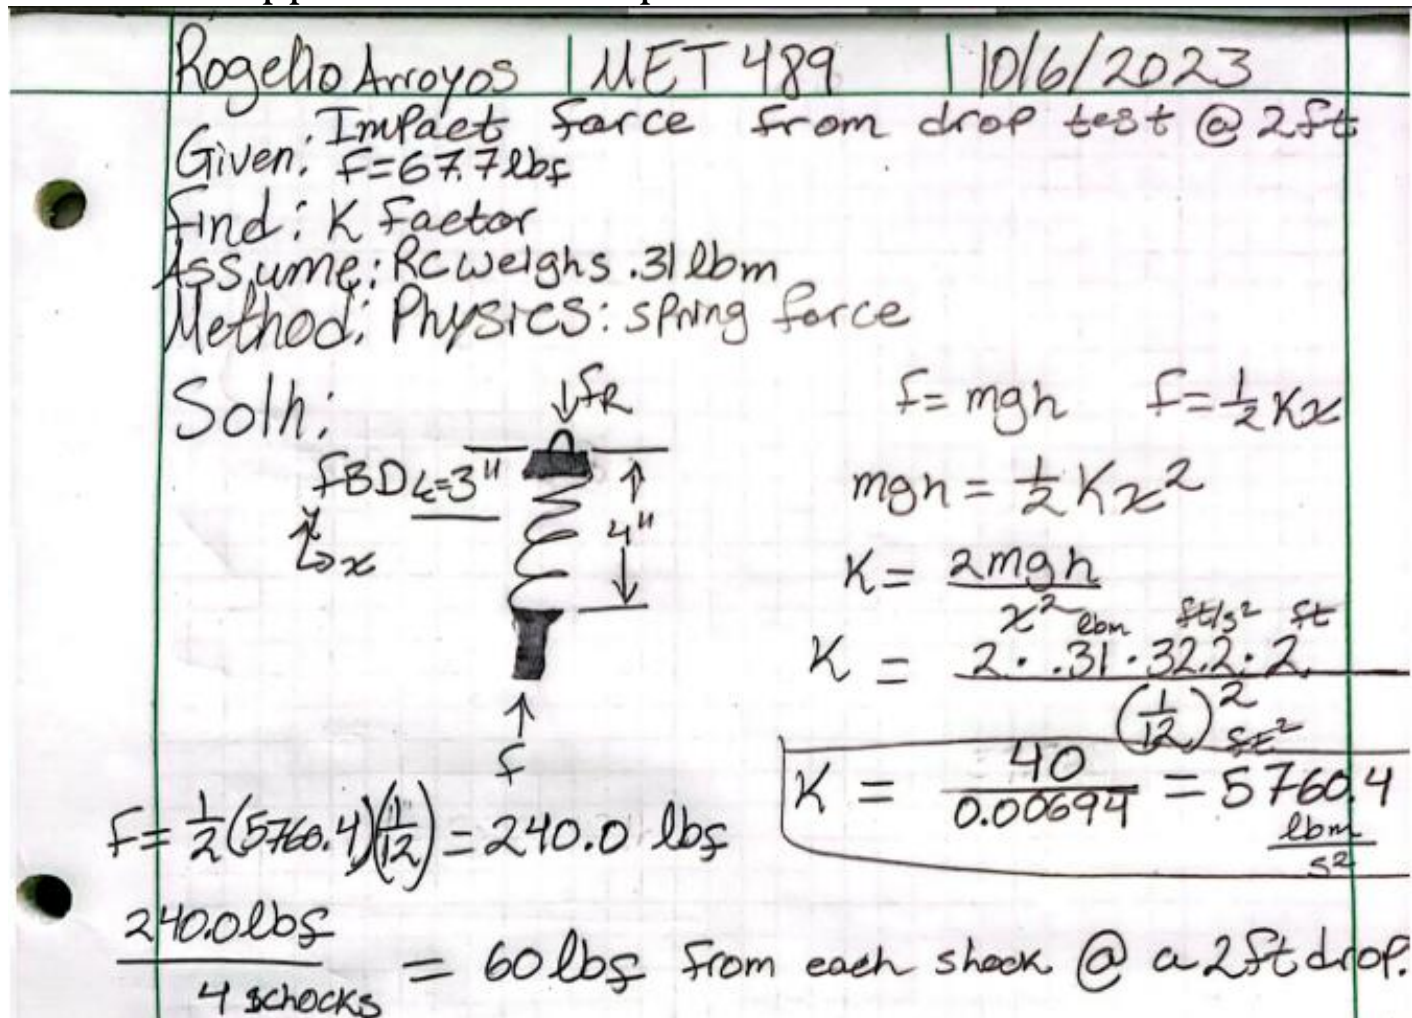 Rogelio Arroyos | MET 489 | 10/6/2023
Given: Impact force from drop test @ 2ft
F=67.7lbf
Find: K Factor
Assume: RC weighs .31 lbm
Method: Physics: spring force
Soln:
↓fR
FBD
=3"
4"
y
x
f
f = mgh f = ½ Kx
mgh = ½ Kx²
K = 2mgh / x²
lbm ft/s² ft
K = 2 · .31 · 32.2 · 2 / (1/12)² ft²
K = 40 / 0.00694 = 5760.4 lbm/s²
F = ½ (5760.4)(1/12) = 240.0 lbf
240.0lbf / 4 schocks = 60 lbf from each shock @ a 2ft drop.